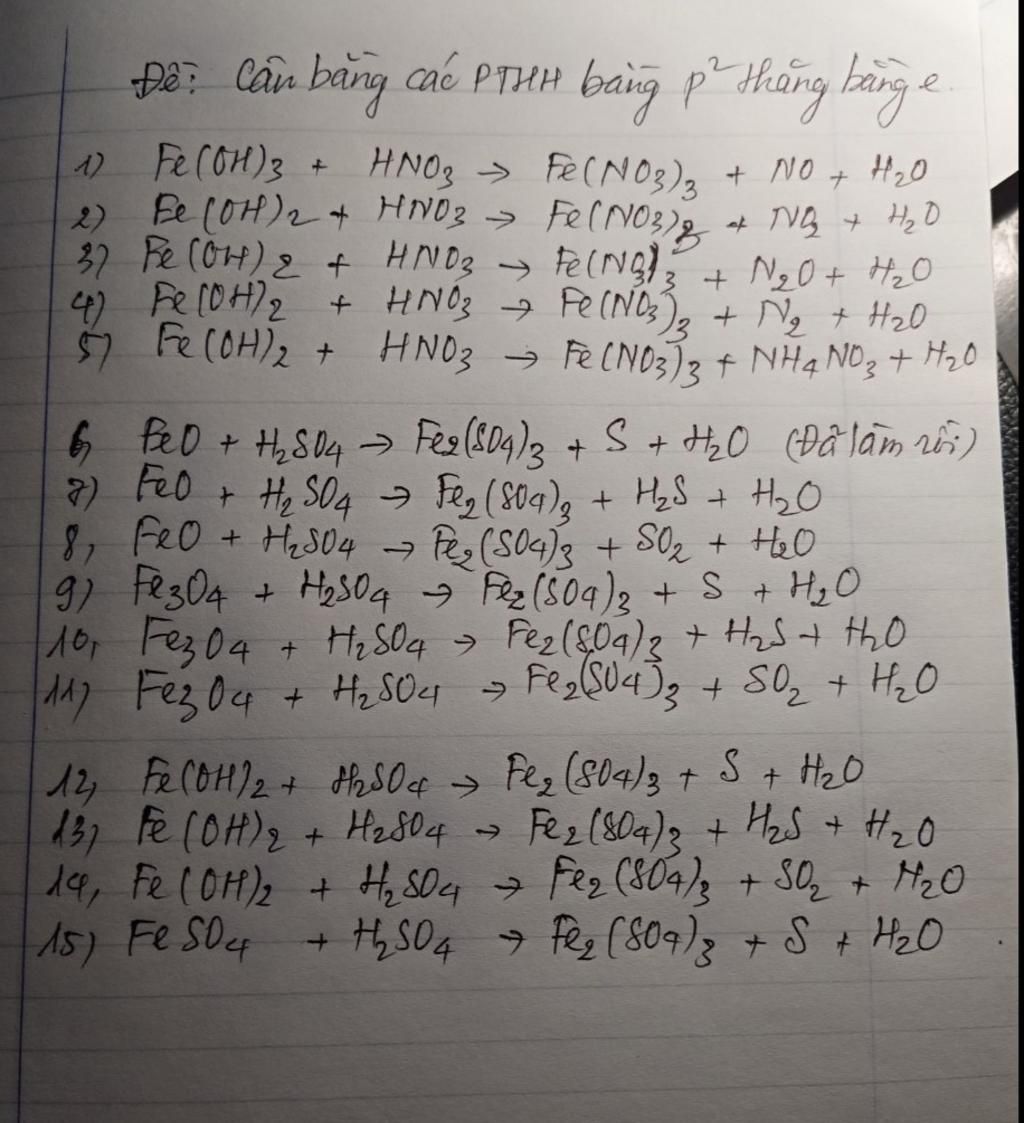 Đề: Cân bằng các PTHH bằng p² thăng bằng e.
1) Fe(OH)3 + HNO3 → Fe(NO3)3 + NO + H2O
2) Fe(OH)2 + HNO3 → Fe(NO3)3 + NO2 + H2O
3) Fe(OH)2 + HNO3 → Fe(NO3)3 + N2O + H2O
4) Fe(OH)2 + HNO3 → Fe(NO3)3 + N2 + H2O
5) Fe(OH)2 + HNO3 → Fe(NO3)3 + NH4NO3 + H2O
6, FeO + H2SO4 → Fe2(SO4)3 + S + H2O (Đã làm rồi)
7) FeO + H2SO4 → Fe2(SO4)3 + H2S + H2O
8, FeO + H2SO4 → Fe2(SO4)3 + SO2 + H2O
9) Fe3O4 + H2SO4 → Fe2(SO4)3 + S + H2O
10, Fe3O4 + H2SO4 → Fe2(SO4)3 + H2S + H2O
11) Fe3O4 + H2SO4 → Fe2(SO4)3 + SO2 + H2O
12, Fe(OH)2 + H2SO4 → Fe2(SO4)3 + S + H2O
13) Fe(OH)2 + H2SO4 → Fe2(SO4)3 + H2S + H2O
14, Fe(OH)2 + H2SO4 → Fe2(SO4)3 + SO2 + H2O
15) FeSO4 + H2SO4 → Fe2(SO4)3 + S + H2O